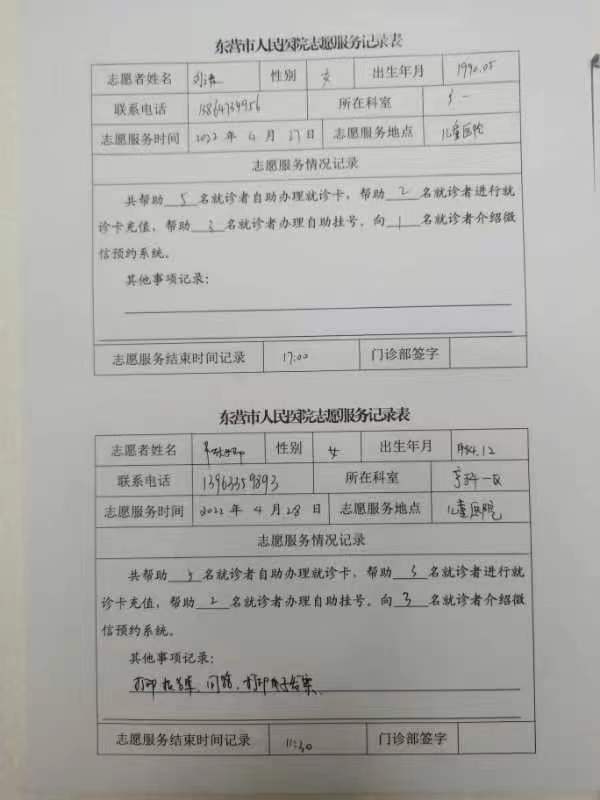 东营市人民医院志愿服务记录表
志愿者姓名 性别 女 出生年月 1990.05
联系电话 所在科室
志愿服务时间 2022 年 4 月 27 日 志愿服务地点 儿童医院
志愿服务情况记录
共帮助 5 名就诊者自助办理就诊卡,帮助 2 名就诊者进行就
诊卡充值,帮助 名就诊者办理自助挂号,向 1 名就诊者介绍微
信预约系统。
其他事项记录:
志愿服务结束时间记录 17:00 门诊部签字
东营市人民医院志愿服务记录表
志愿者姓名 性别 女 出生年月 1984.12
联系电话 13963359893 所在科室
志愿服务时间 2022 年 4 月 28 日 志愿服务地点 儿童医院
志愿服务情况记录
共帮助 名就诊者自助办理就诊卡,帮助 名就诊者进行就
诊卡充值,帮助 2 名就诊者办理自助挂号,向 3 名就诊者介绍微
信预约系统。
其他事项记录:
打印报告单、问路、打印电子发票
志愿服务结束时间记录 11:30 门诊部签字